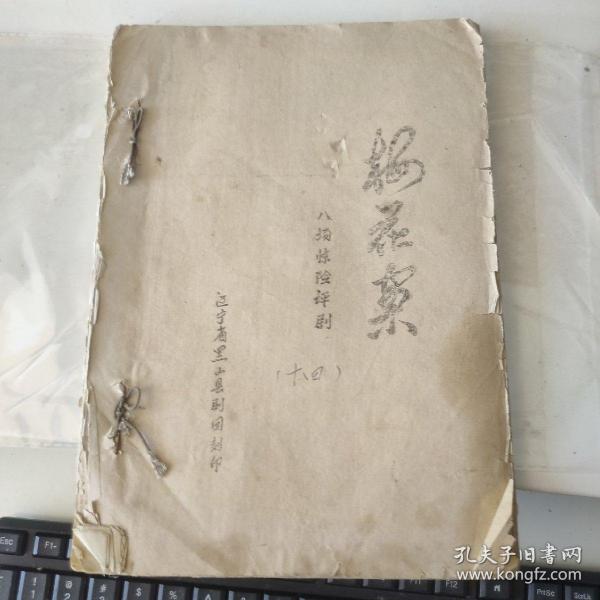 梅花案
八场惊险评剧
(十四)
辽宁省黑山县剧团刻印
孔夫子旧书网
www.kongfz.com
Esc
F1
PrtSc
ScrLk